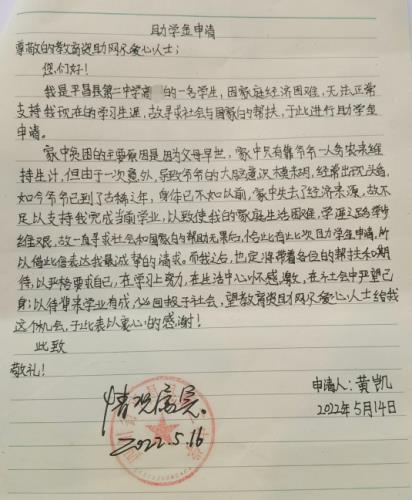 助学金申请
尊敬的教育资助网爱心人士:
您们好!
我是平昌县第二中学高 的一名学生,因家庭经济困难,无法正常
支持我现在的学习生涯,故寻求社会与国家的帮扶,于此进行助学金
申请。
家中贫困的主要原因是因为父母早世,家中只有靠爷爷一人务农来维
持生计,但由于一次意外,导致爷爷的大脑意识模糊,经常出现头痛,
如今爷爷已到了古稀之年,身体已不如以前,家中失去了经济来源,故不
足以支持我完成当前学业,以致使我的家庭生活困难,学涯之路举步
维艰,故一直寻求社会和国家的帮助无果后,恰此有此次助学金申请,所
以借此信表达我最诚挚的请求。而我之后,也定将带着各位的帮扶和期
待,以严格要求自己,在学习上努力,在生活中心怀感激,在社会中严望己
身;以待将来学业有成,必回报于社会,望教育资助网爱心人士给我
这个机会,于此表以衷心的感谢!
此致
敬礼!
情况属实。
2022.5.16
申请人:黄凯
2022年5月14日